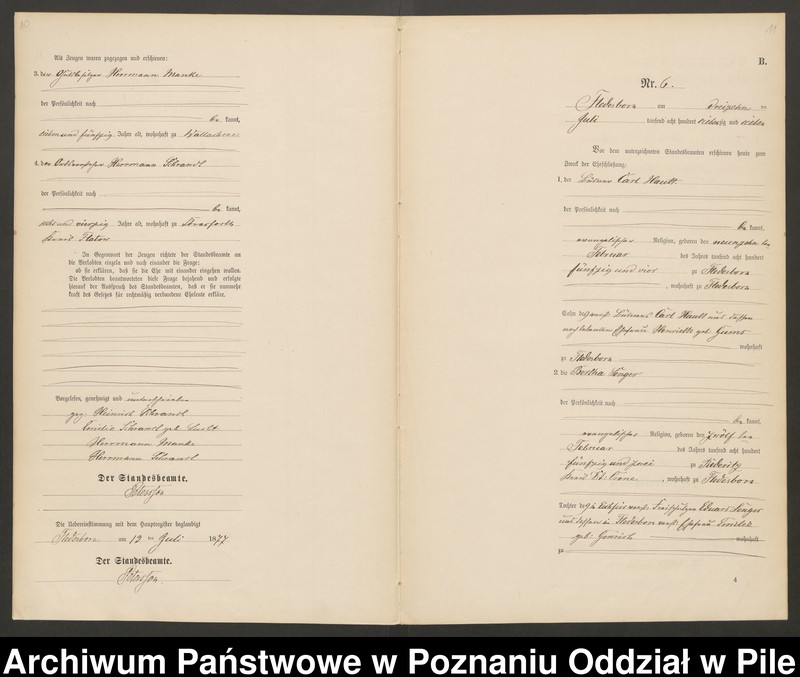 10
Als Zeugen waren zugezogen und erschienen:
3. der Gutsbesitzer Herrmann Manke
der Persönlichkeit nach
be kannt,
sieben und fünfzig Jahre alt, wohnhaft zu Wallachsee
4. der Herrmann Schrandt
der Persönlichkeit nach
be kannt,
und vierzig Jahre alt, wohnhaft zu Strasforth
Kreis Flatow
In Gegenwart der Zeugen richtete der Standesbeamte an
die Verlobten einzeln und nach einander die Frage:
ob sie erklären, daß sie die Ehe mit einander eingehen wollen.
Die Verlobten beantworteten diese Frage bejahend und erfolgte
hierauf der Ausspruch des Standesbeamten, daß er sie nunmehr
kraft des Gesetzes für rechtmäßig verbundene Eheleute erkläre.
Vorgelesen, genehmigt und unterschrieben
gez. Heinrich Schrandt
Emilie Schrandt geb.
Herrmann Manke
Herrmann Schrandt
Der Standesbeamte.
Die Uebereinstimmung mit dem Hauptregister beglaubigt
Flederborn am 13 ten Juli 1877
Der Standesbeamte.
11
B.
Nr. 6.
Flederborn am dreizehn ten
Juli tausend acht hundert siebenzig und sieben
Vor dem unterzeichneten Standesbeamten erschienen heute zum
Zweck der Eheschließung:
1. der Büdner Carl Hautt
der Persönlichkeit nach
be kannt,
evangelischer Religion, geboren den neunzehn ten
Februar des Jahres tausend acht hundert
fünfzig und vier zu Flederborn
, wohnhaft zu Flederborn
Sohn des verst. Büdners Carl Hautt und dessen
noch lebenden Ehefrau Henriette geb.
wohnhaft
zu Flederborn
2. die Bertha Senger
der Persönlichkeit nach
be kannt,
evangelischer Religion, geboren den zwölf ten
Februar des Jahres tausend acht hundert
fünfzig und zwei zu
Kreis Dt. Crone, wohnhaft zu Flederborn
Tochter des verst. Eduard Senger
und dessen in Flederborn verst. Ehefrau
geb. wohnhaft
zu
4
Archiwum Państwowe w Poznaniu Oddział w Pile